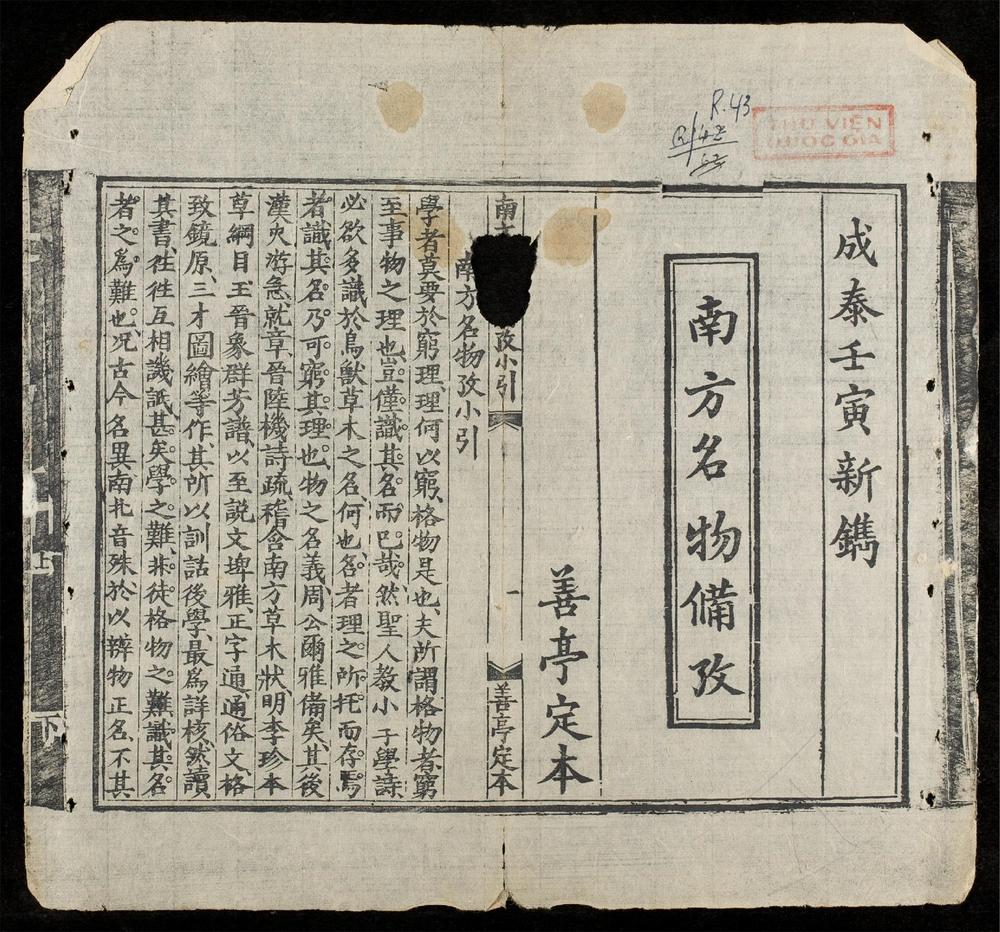 R.43
THƯ VIỆN
QUỐC GIA
成泰壬寅新鐫
南方名物備攷
善亭定本
南 攷小引 一 善亭定本
南方名物攷小引
學者莫要於窮理、理何以窮、格物是也、夫所謂格物者、窮
至事物之理也、豈僅識其名而已哉、然聖人教小子學詩
必欲多識於鳥獸草木之名、何也、名者理之所托而存焉
者、識其名、乃可窮其理也、物之名義、周公爾雅備矣、其後
漢史游急就章、晉陸機詩疏、稽含南方草木狀、明李珍本
草綱目、王晉象群芳譜、以至説文埤雅、正字通、通俗文、格
致鏡原、三才圖繪等作、其所以訓詁後學、最爲詳核、然讀
其書、徃徃互相譏詆、甚矣、學之難、非徒格物之難、識其名
者之爲難也、况古今名異、南北音殊、於以辨物正名、不其
上
下